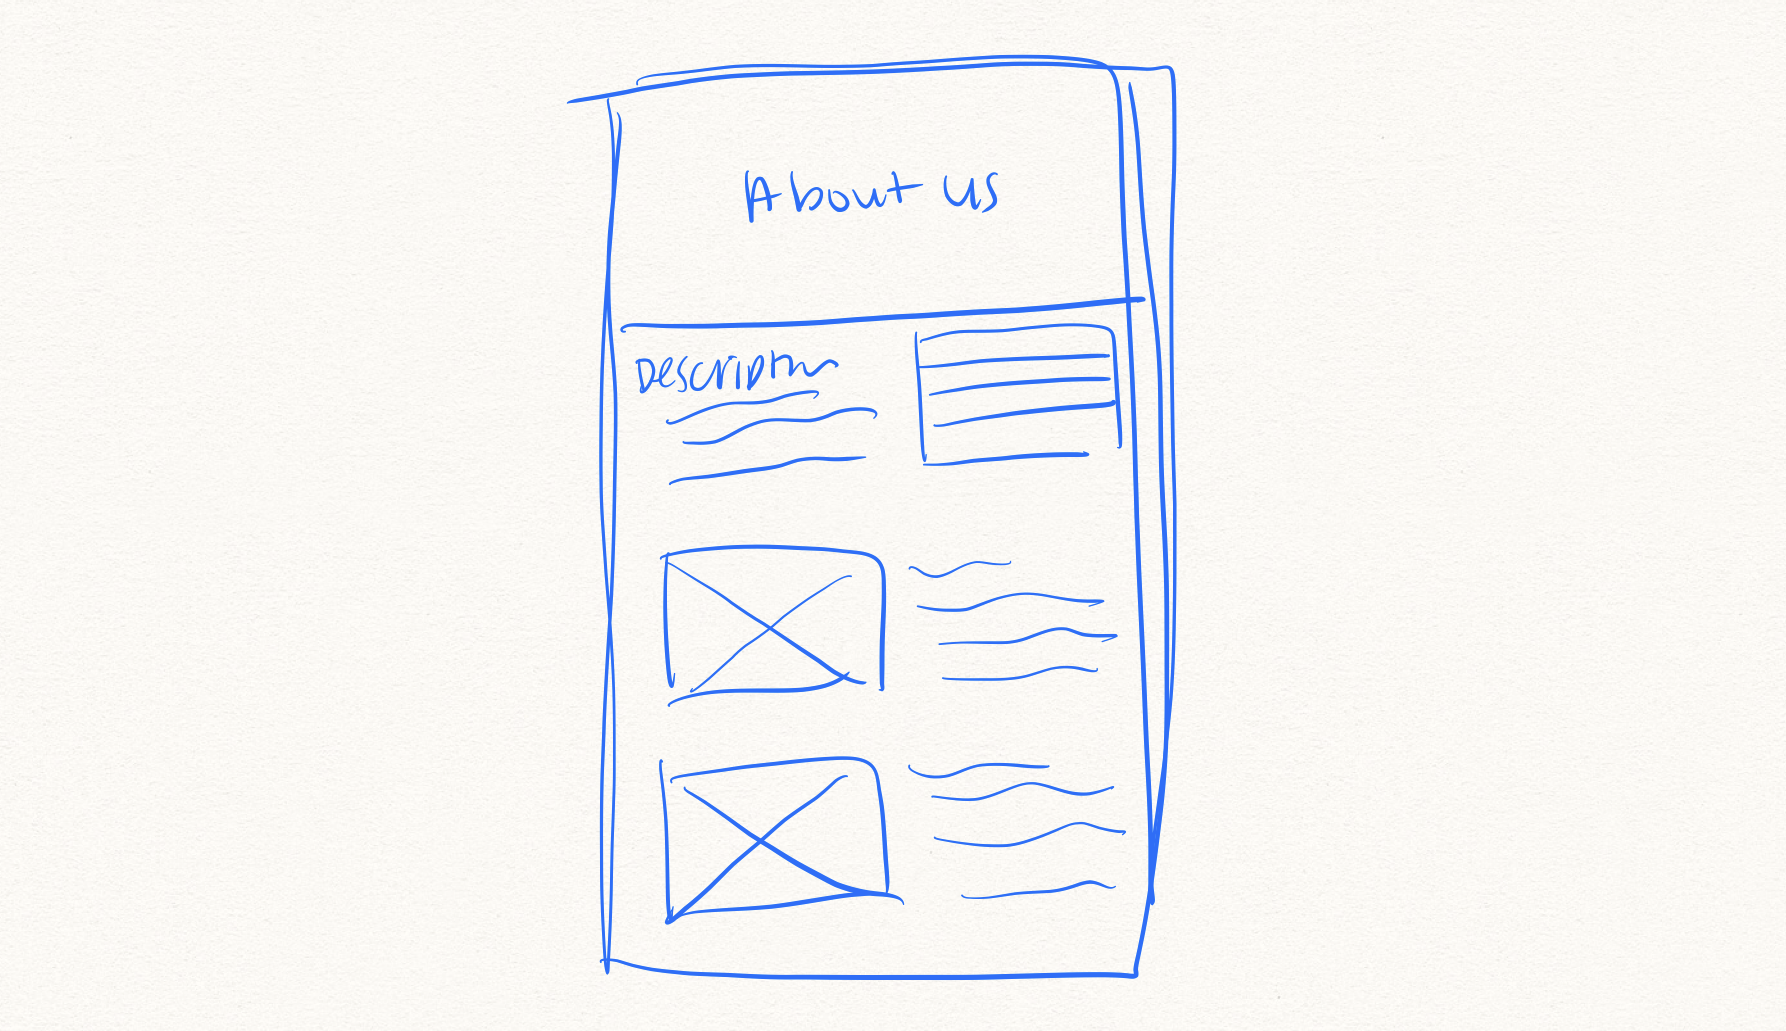 About us
Description